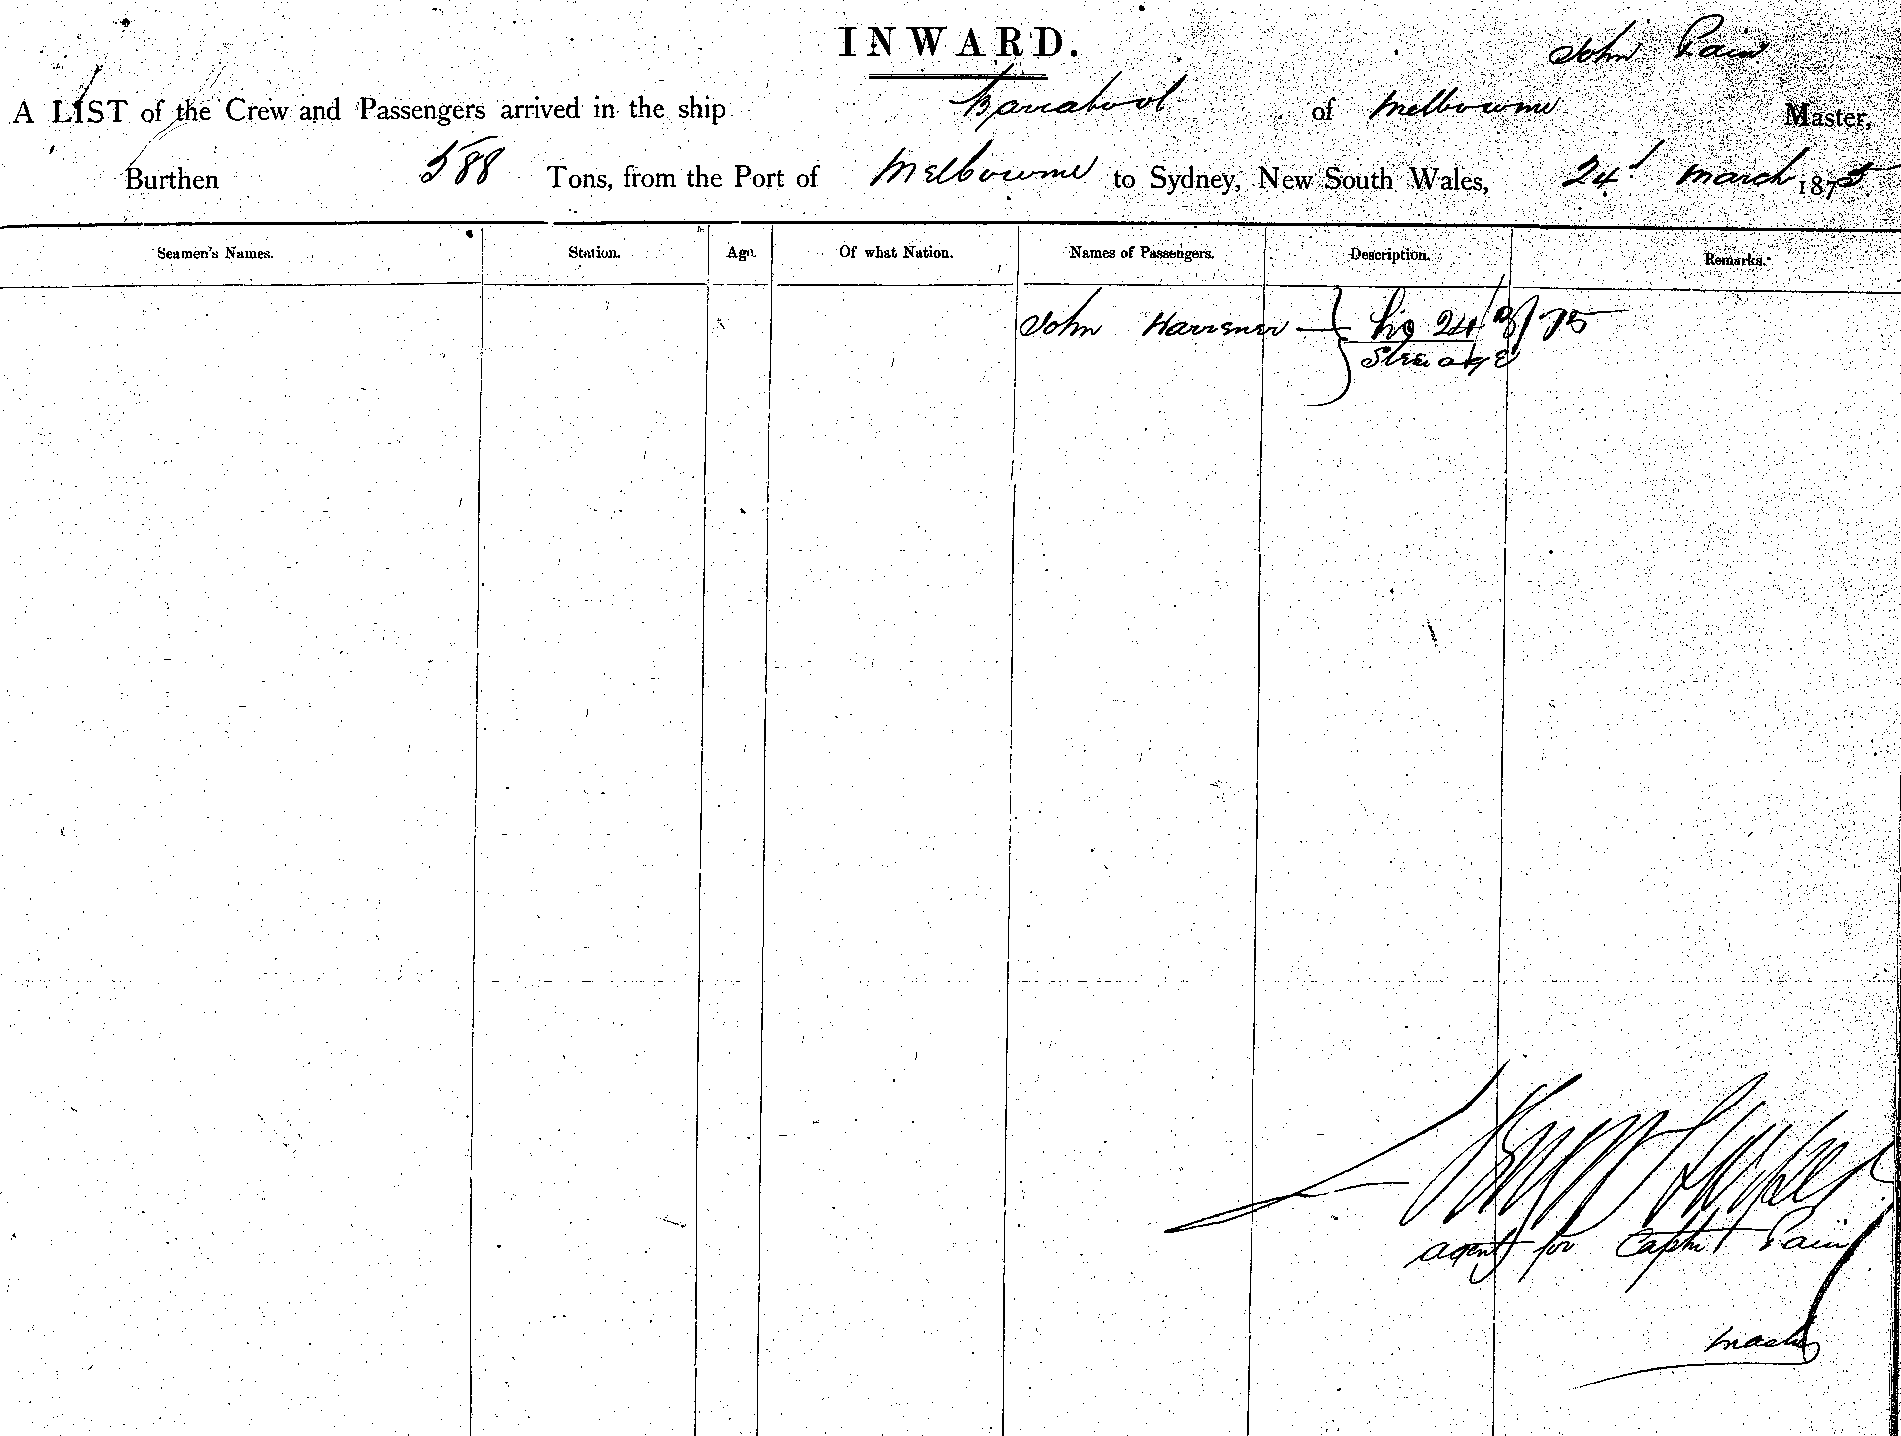 INWARD.
John Pain
A LIST of the Crew and Passengers arrived in the ship Barrabool of Melbourne Master,
Burthen 588 Tons, from the Port of Melbourne to Sydney, New South Wales, 24 March 1875
Seamen's Names. Station. Age. Of what Nation. Names of Passengers. Description. Remarks.
John 24/3/75
Steerage
agent for Captn Pain
master